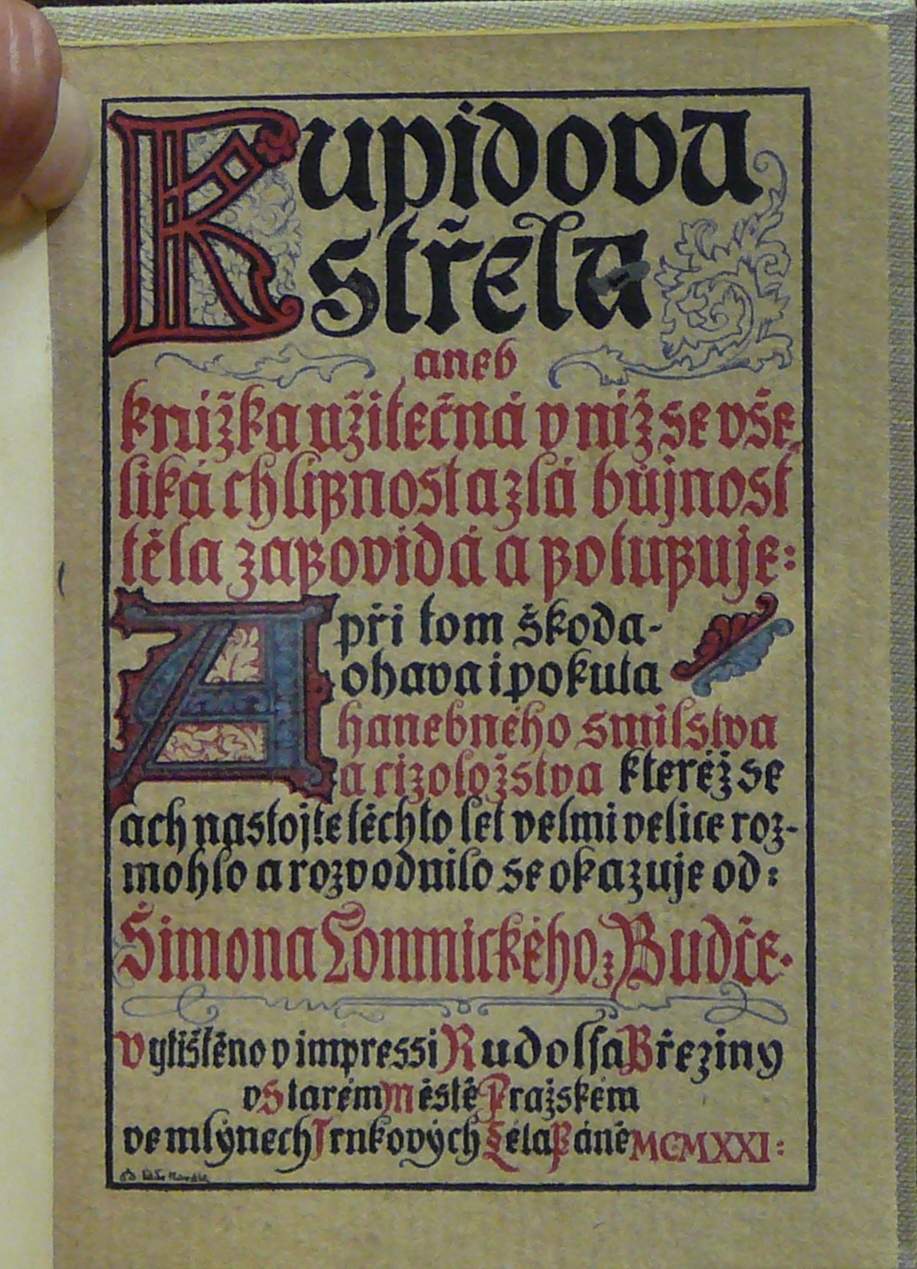 Kupidova
střela
aneb
knižka užitečná v niž se vše
liká chlipnost a zlá bůjnost
těla zapovidá a potupuje:
A při tom škoda-
ohava i pokuta
hanebného smilstva
a cizoložstva kteréž se
ach nastojte těchto let velmi velice roz-
mohlo a rozvodnilo se okazuje od:
Šimona Lomnického z Budče.
Vytištěno v impressi Rudolfa Březiny
v Starém Městě Pražském
ve mlýnech Trnkových Léta Páně MCMXXI: